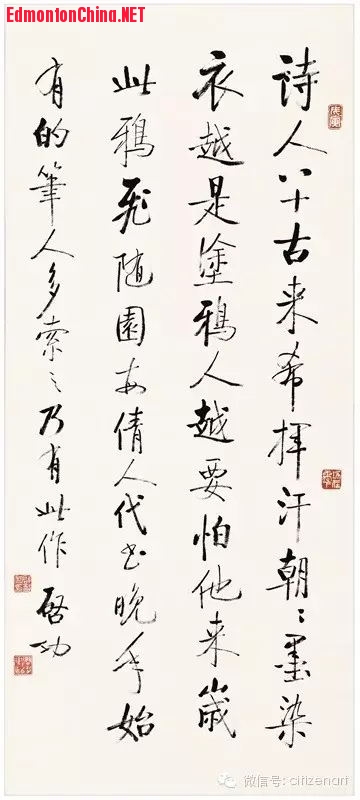 EdmontonChina.NET
诗人八十古来希揮汗朝〻墨染
衣越是塗鴉人越要怕他来歲
此鴉飛随園每倩人代书晚年始
有的筆人多索之乃有此作 啓功
微信号: citizenart